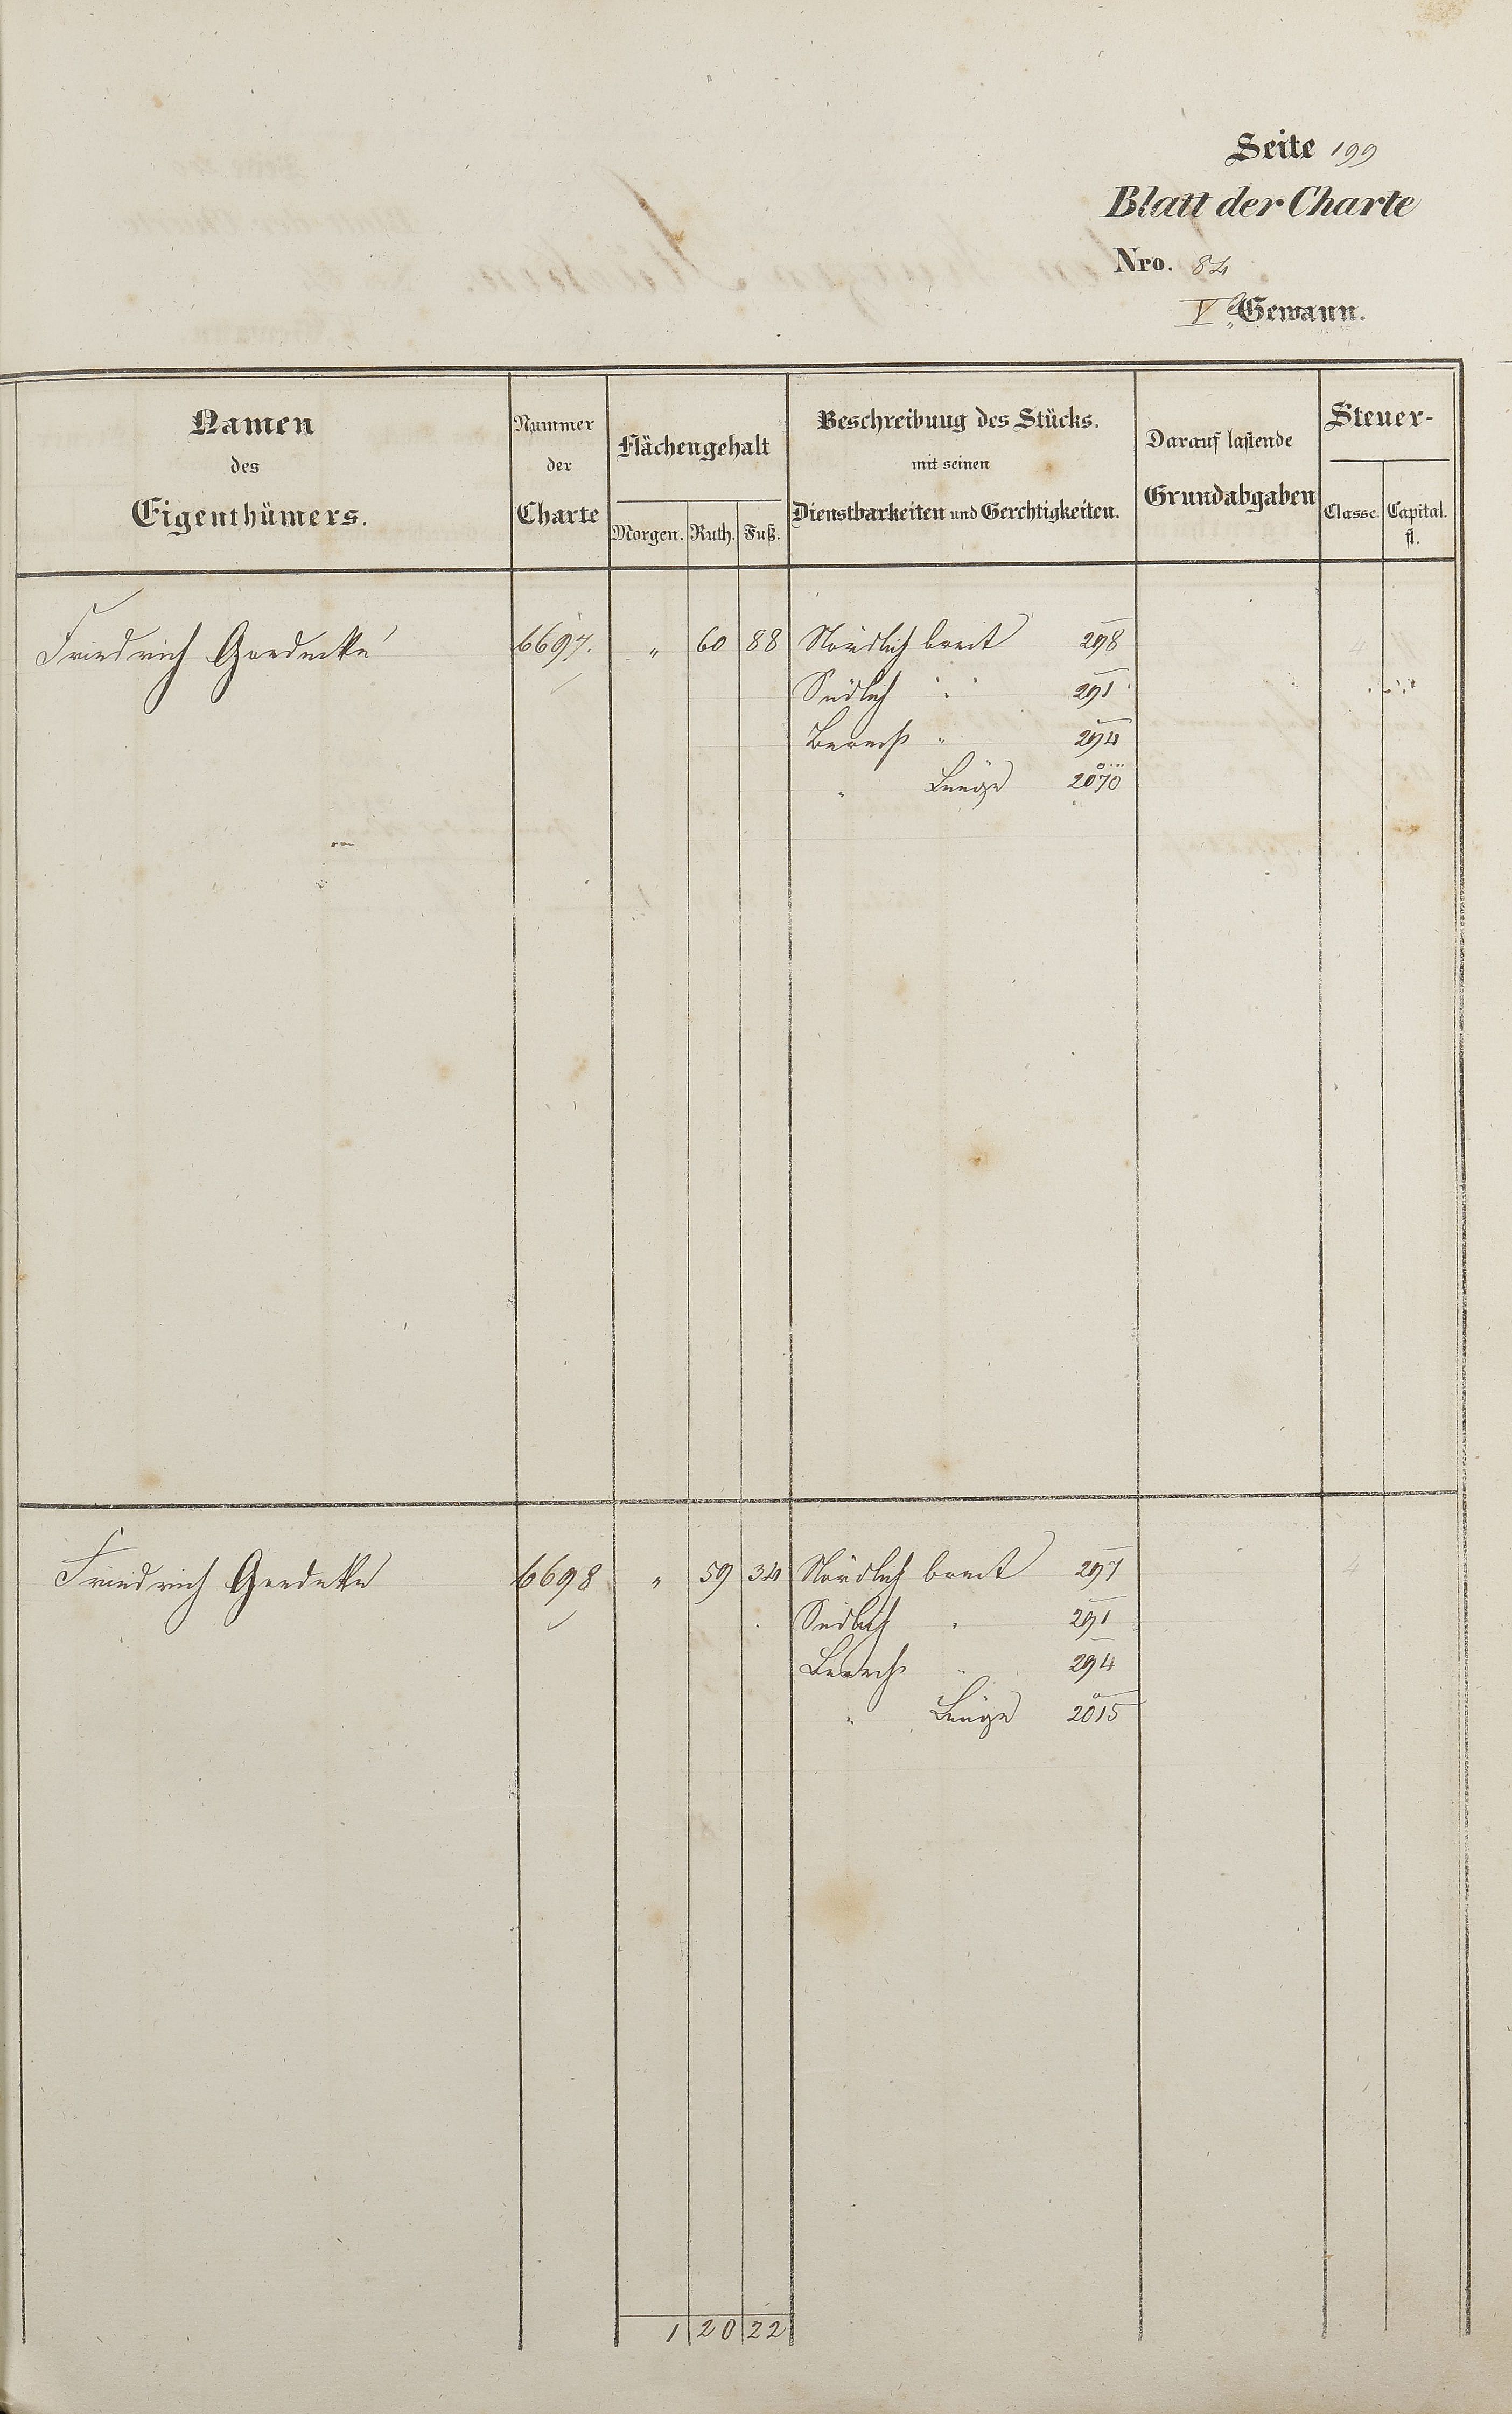 Seite 199
Blatt der Charte
Nro. 84
V Gewann.
Namen des Eigenthümers.
Nummer der Charte
Flächengehalt
Morgen. Ruth. Fuß.
Beschreibung des Stücks. mit seinen Dienstbarkeiten und Gerechtigkeiten.
Darauf lastende Grundabgaben
Steuer-
Classe. Capital. fl.
Friedrich Goedecke 6697. " 60 88 Nördlich breit 298
Südlich " " 291
Berech " 294
" Länge 2070
Friedrich Goedecke 6698 " 59 34 Nördlich breit 297
Südlich " 291
Berech " 294
" Länge 2015
4
4
1 20 22